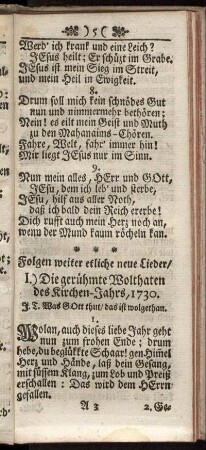 ) 5 (
Werd' ich krank und eine Leich?
JEsus heilt; Er schüzt im Grabe.
JEsus ist mein Sieg im Streit,
und mein Heil in Ewigkeit.
8.
Drum soll mich kein schnödes Gut
nun und nimmermehr bethören;
Nein! es eilt mein Geist und Muth
zu den Mahanaims-Chören.
Fahre, Welt, fahr' immer hin!
Mir liegt JEsus nur im Sinn.
9.
Nun mein alles, HErr und GOtt,
JEsu, dem ich leb' und sterbe,
JEsu, hilf aus aller Noth,
daß ich bald dein Reich ererbe!
Dich rufft auch mein Herz noch an,
wenn der Mund kaum röcheln kan.
* * *
Folgen weiter etliche neue Lieder/
I.) Die gerühmte Wolthaten
des Kirchen-Jahrs, 1730.
J. T. Was GOtt thut, das ist wolgethan.
1.
Wolan, auch dieses liebe Jahr geht
nun zum frohen Ende; drum
hebe, du beglükte Schaar! gen Him̃el
Herz und Hände, laß dein Gesang,
mit süssem Klang, zum Lob und Preiß
erschallen: Das wird dem HErrn
gefallen.
A 3 2. Ge-